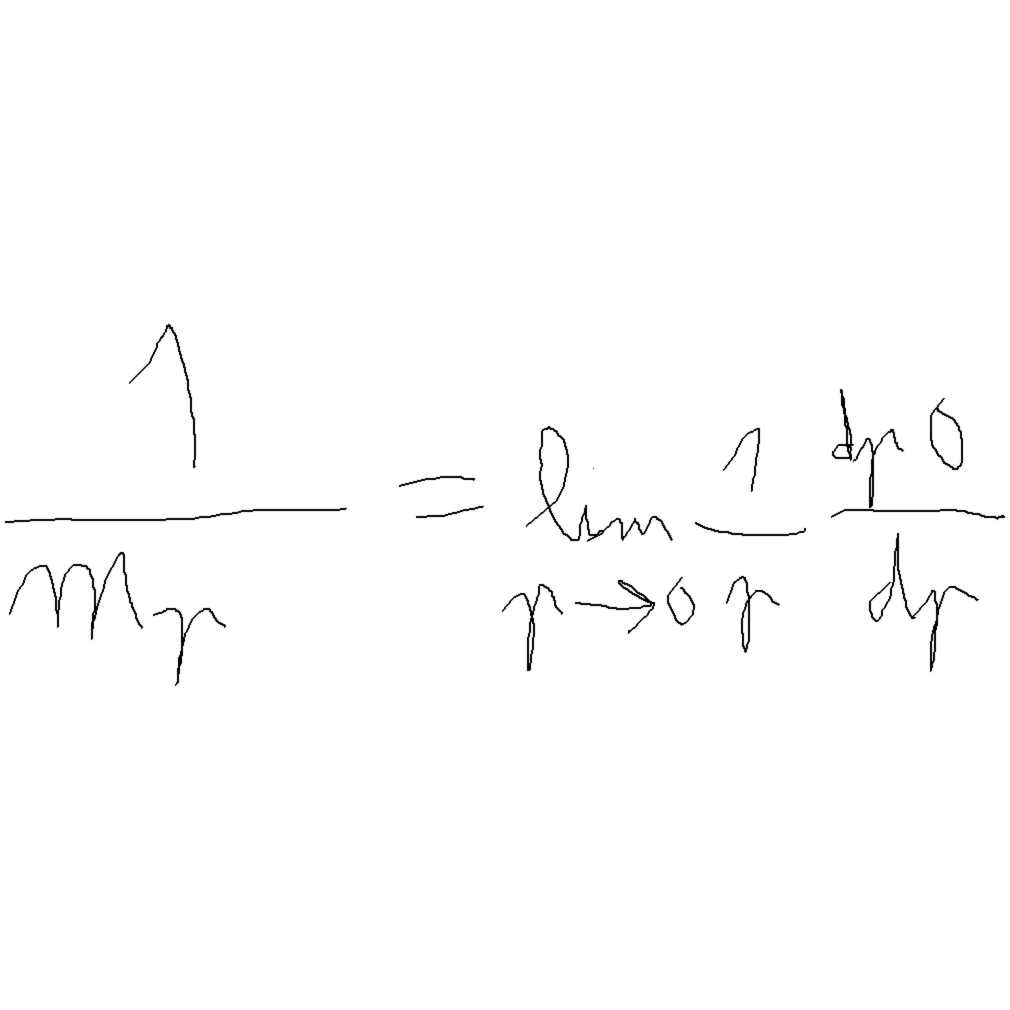 \frac{1}{m_p} = \lim_{p \to 0} \frac{1}{p} \frac{dp^0}{dp}